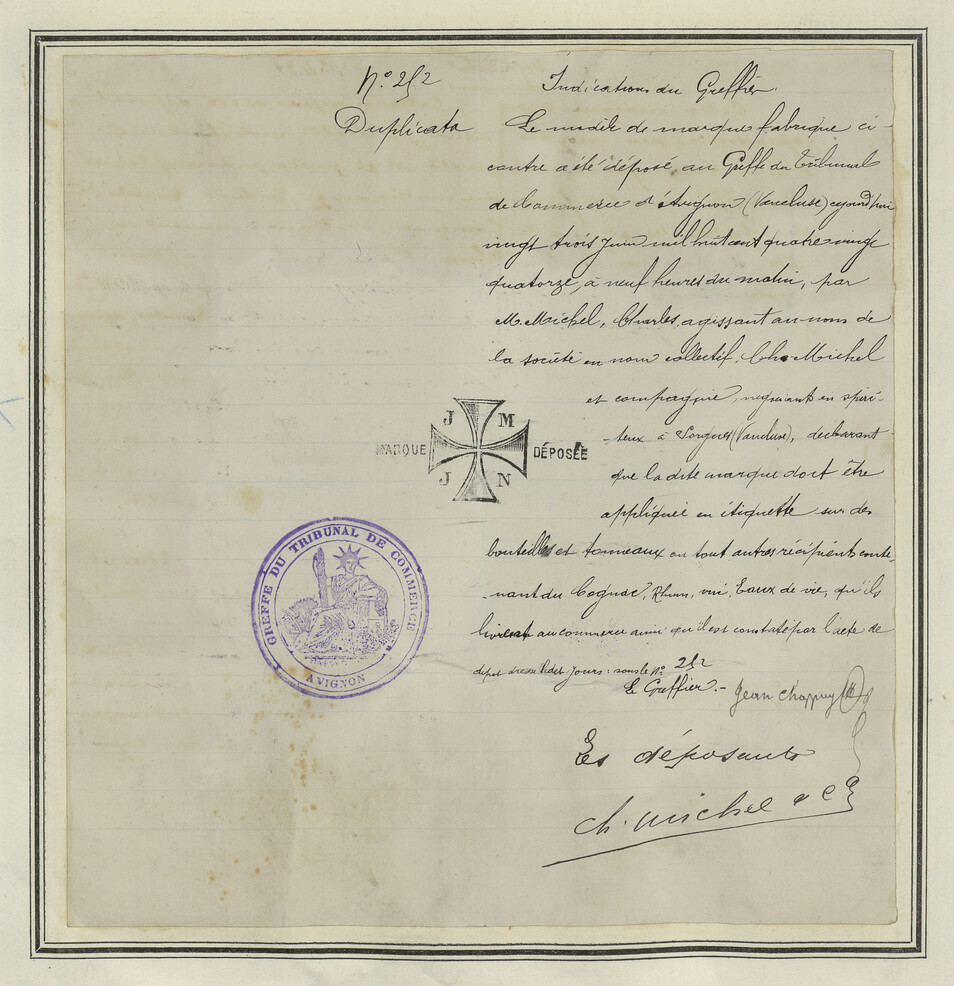 N° 252
Duplicata
Indications du Greffier.
Le modèle de marque fabrique ci-
contre a été déposé au Greffe du Tribunal
de Commerce d'Avignon (Vaucluse) cejourd'hui
vingt trois Juin mil huit cent quatre vingt
quatorze, à neuf heures du matin, par
M. Michel, Charles, agissant au nom de
la société en nom collectif, Ch. Michel
et compagnie, négociant en spiri-
-tueux à Sorgues (Vaucluse), déclarant
que la dite marque doit être
appliquée en étiquette sur des
bouteilles et tonneaux ou tout autres récipient conte-
-nant du Cognac, Rhum, vin, Eaux de vie, qu'ils
livrent au commerce ainsi qu'il est constaté par l'acte de
dépot dressé ledit Jours : sous le N° 252
Le Greffier. -
Jean Chappuy
Les déposants
Ch. Michel & Cie
J M
MARQUE DÉPOSÉE
J N
GREFFE DU TRIBUNAL DE COMMERCE
AVIGNON